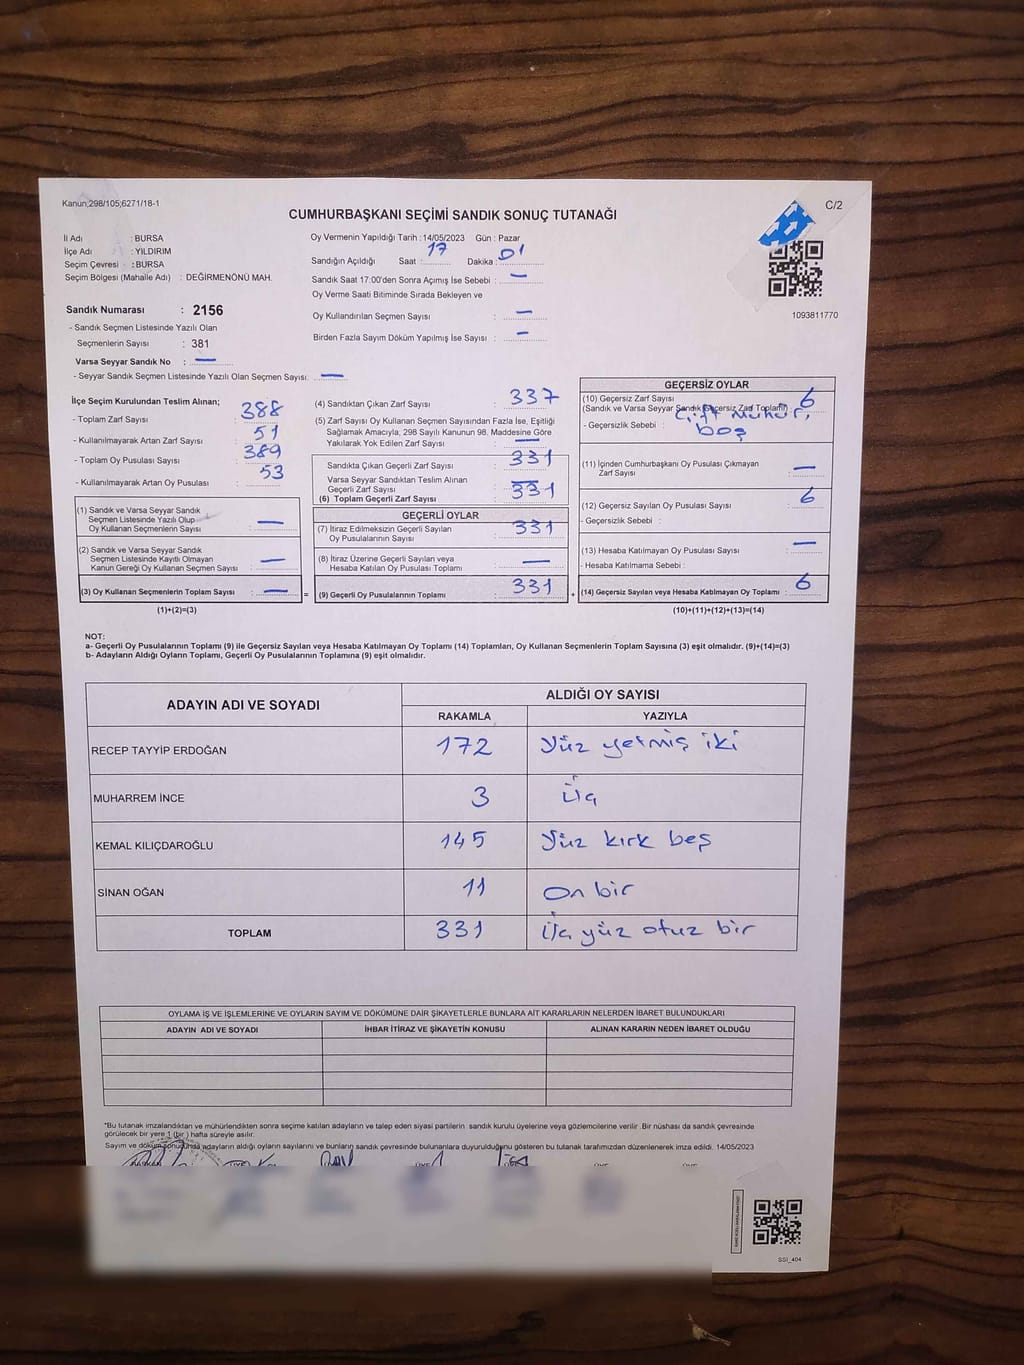 Kanun;298/105;6271/18-1
C/2
CUMHURBAŞKANI SEÇİMİ SANDIK SONUÇ TUTANAĞI
İl Adı : BURSA
İlçe Adı : YILDIRIM
Seçim Çevresi : BURSA
Seçim Bölgesi (Mahalle Adı) : DEĞİRMENÖNÜ MAH.
Sandık Numarası : 2156
- Sandık Seçmen Listesinde Yazılı Olan
Seçmenlerin Sayısı : 381
Varsa Seyyar Sandık No : —
- Seyyar Sandık Seçmen Listesinde Yazılı Olan Seçmen Sayısı: —
Oy Vermenin Yapıldığı Tarih :14/05/2023 Gün : Pazar
Sandığın Açıldığı Saat : 17 Dakika : 01
Sandık Saat 17:00'den Sonra Açımış İse Sebebi : —
Oy Verme Saati Bitiminde Sırada Bekleyen ve
Oy Kullandırılan Seçmen Sayısı : —
Birden Fazla Sayım Döküm Yapılmış İse Sayısı : —
1093811770
İlçe Seçim Kurulundan Teslim Alınan;
- Toplam Zarf Sayısı : 388
- Kullanılmayarak Artan Zarf Sayısı : 51
- Toplam Oy Pusulası Sayısı : 389
- Kullanılmayarak Artan Oy Pusulası : 53
(1) Sandık ve Varsa Seyyar Sandık
Seçmen Listesinde Yazılı Olup
Oy Kullanan Seçmenlerin Sayısı —
(2) Sandık ve Varsa Seyyar Sandık
Seçmen Listesinde Kayıtlı Olmayan
Kanun Gereği Oy Kullanan Seçmen Sayısı —
(3) Oy Kullanan Seçmenlerin Toplam Sayısı — =
(1)+(2)=(3)
(4) Sandıktan Çıkan Zarf Sayısı : 337
(5) Zarf Sayısı Oy Kullanan Seçmen Sayısından Fazla İse, Eşitliği
Sağlamak Amacıyla, 298 Sayılı Kanunun 98. Maddesine Göre
Yakılarak Yok Edilen Zarf Sayısı : —
Sandıkta Çıkan Geçerli Zarf Sayısı : 331
Varsa Seyyar Sandıktan Teslim Alınan
Geçerli Zarf Sayısı : —
(6) Toplam Geçerli Zarf Sayısı 331
GEÇERLİ OYLAR
(7) İtiraz Edilmeksizin Geçerli Sayılan
Oy Pusulalarının Sayısı : 331
(8) İtiraz Üzerine Geçerli Sayılan veya
Hesaba Katılan Oy Pusulası Toplamı : —
(9) Geçerli Oy Pusulalarının Toplamı : 331 +
GEÇERSİZ OYLAR
(10) Geçersiz Zarf Sayısı : 6
(Sandık ve Varsa Seyyar Sandık Geçersiz Zarf Toplamı)
- Geçersizlik Sebebi : Çift mühür,
boş
(11) İçinden Cumhurbaşkanı Oy Pusulası Çıkmayan
Zarf Sayısı : —
(12) Geçersiz Sayılan Oy Pusulası Sayısı : 6
- Geçersizlik Sebebi :
(13) Hesaba Katılmayan Oy Pusulası Sayısı : —
- Hesaba Katılmama Sebebi :
(14) Geçersiz Sayılan veya Hesaba Katılmayan Oy Toplamı : 6
(10)+(11)+(12)+(13)=(14)
NOT:
a- Geçerli Oy Pusulalarının Toplamı (9) ile Geçersiz Sayılan veya Hesaba Katılmayan Oy Toplamı (14) Toplamları, Oy Kullanan Seçmenlerin Toplam Sayısına (3) eşit olmalıdır. (9)+(14)=(3)
b- Adayların Aldığı Oyların Toplamı, Geçerli Oy Pusulalarının Toplamına (9) eşit olmalıdır.
ADAYIN ADI VE SOYADI ALDIĞI OY SAYISI
RAKAMLA YAZIYLA
RECEP TAYYİP ERDOĞAN 172 Yüz yetmiş iki
MUHARREM İNCE 3 Üç
KEMAL KILIÇDAROĞLU 145 Yüz kırk beş
SİNAN OĞAN 11 On bir
TOPLAM 331 Üç yüz otuz bir
OYLAMA İŞ VE İŞLEMLERİNE VE OYLARIN SAYIM VE DÖKÜMÜNE DAİR ŞİKAYETLERLE BUNLARA AİT KARARLARIN NELERDEN İBARET BULUNDUKLARI
ADAYIN ADI VE SOYADI İHBAR İTİRAZ VE ŞİKAYETİN KONUSU ALINAN KARARIN NEDEN İBARET OLDUĞU
*Bu tutanak imzalandıktan ve mühürlendikten sonra seçime katılan adayların ve talep eden siyasi partilerin sandık kurulu üyelerine veya gözlemcilerine verilir. Bir nüshası da sandık çevresinde
görülecek bir yere 1 (bir) hafta süreyle asılır.
Sayım ve döküm sonucunda adayların aldığı oyların sayılarını ve bunların sandık çevresinde bulunanlara duyurulduğunu gösteren bu tutanak tarafımızdan düzenlenerek imza edildi. 14/05/2023
SSI_404